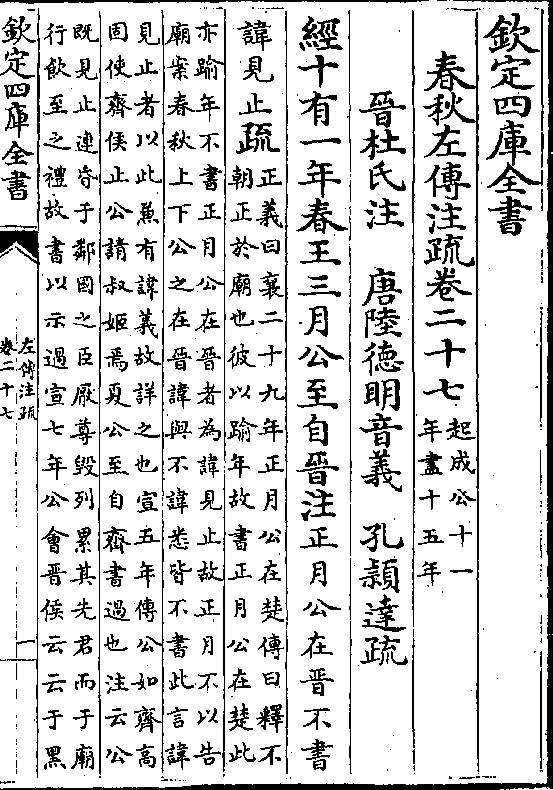 欽定四庫全書
春秋左傳注疏卷二十七
起成公十一
年盡十五年
晉杜氏注 唐陸德明音義 孔頴達疏
經十有一年春王三月公至自晉注正月公在晉不書
諱見止疏
正義曰襄二十九年正月公在楚傳曰釋不
朝正於廟也彼以踰年故書正月公在楚此
亦踰年不書正月公在晉者為諱見止故正月不以告
廟案春秋上下公之在晉諱與不諱悉皆不書此言諱
見止者以此兼有諱義故詳之也宣五年傳公如齊高
固使齊侯止公請叔姬焉夏公至自齊書過也注云公
既見止連昏于鄰國之臣厭尊毀列累其先君而于廟
行飲至之禮故書以示過宣七年公會晉侯云云于黑
欽定四庫全書
左傳注疏
卷二十七
一